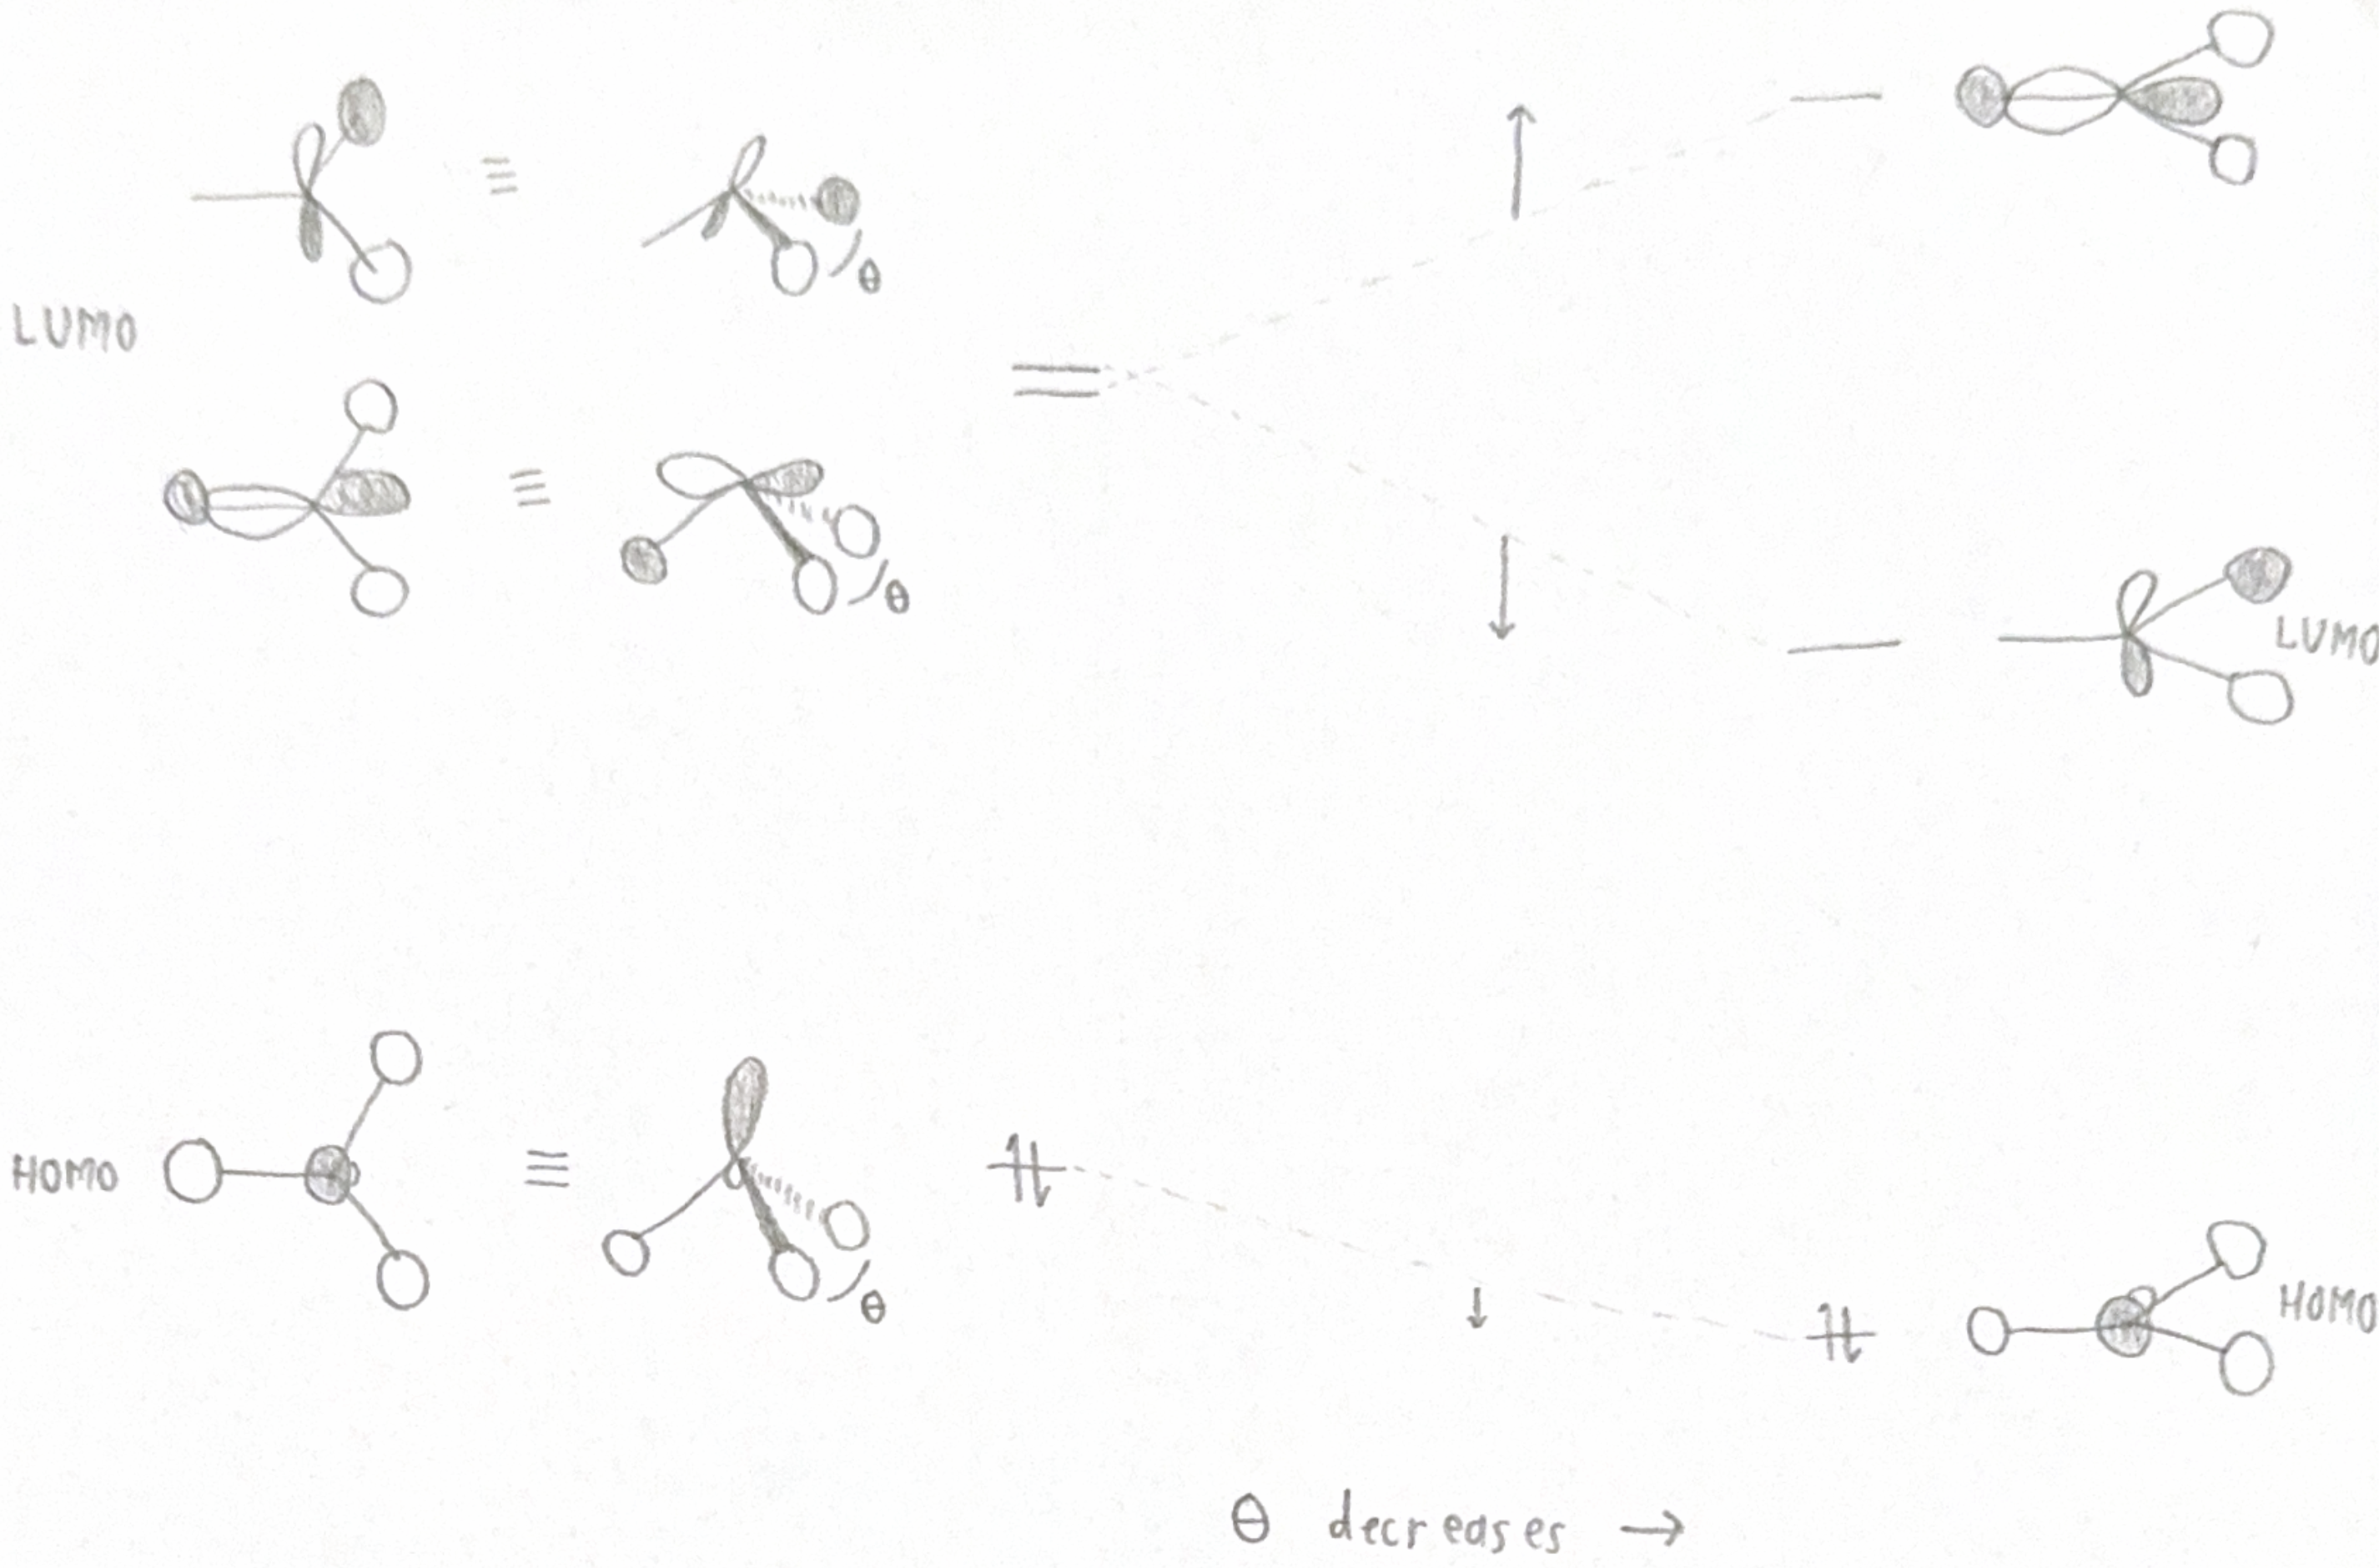 θ
LUMO
θ
LUMO
HOMO
θ
HOMO
θ decreases →